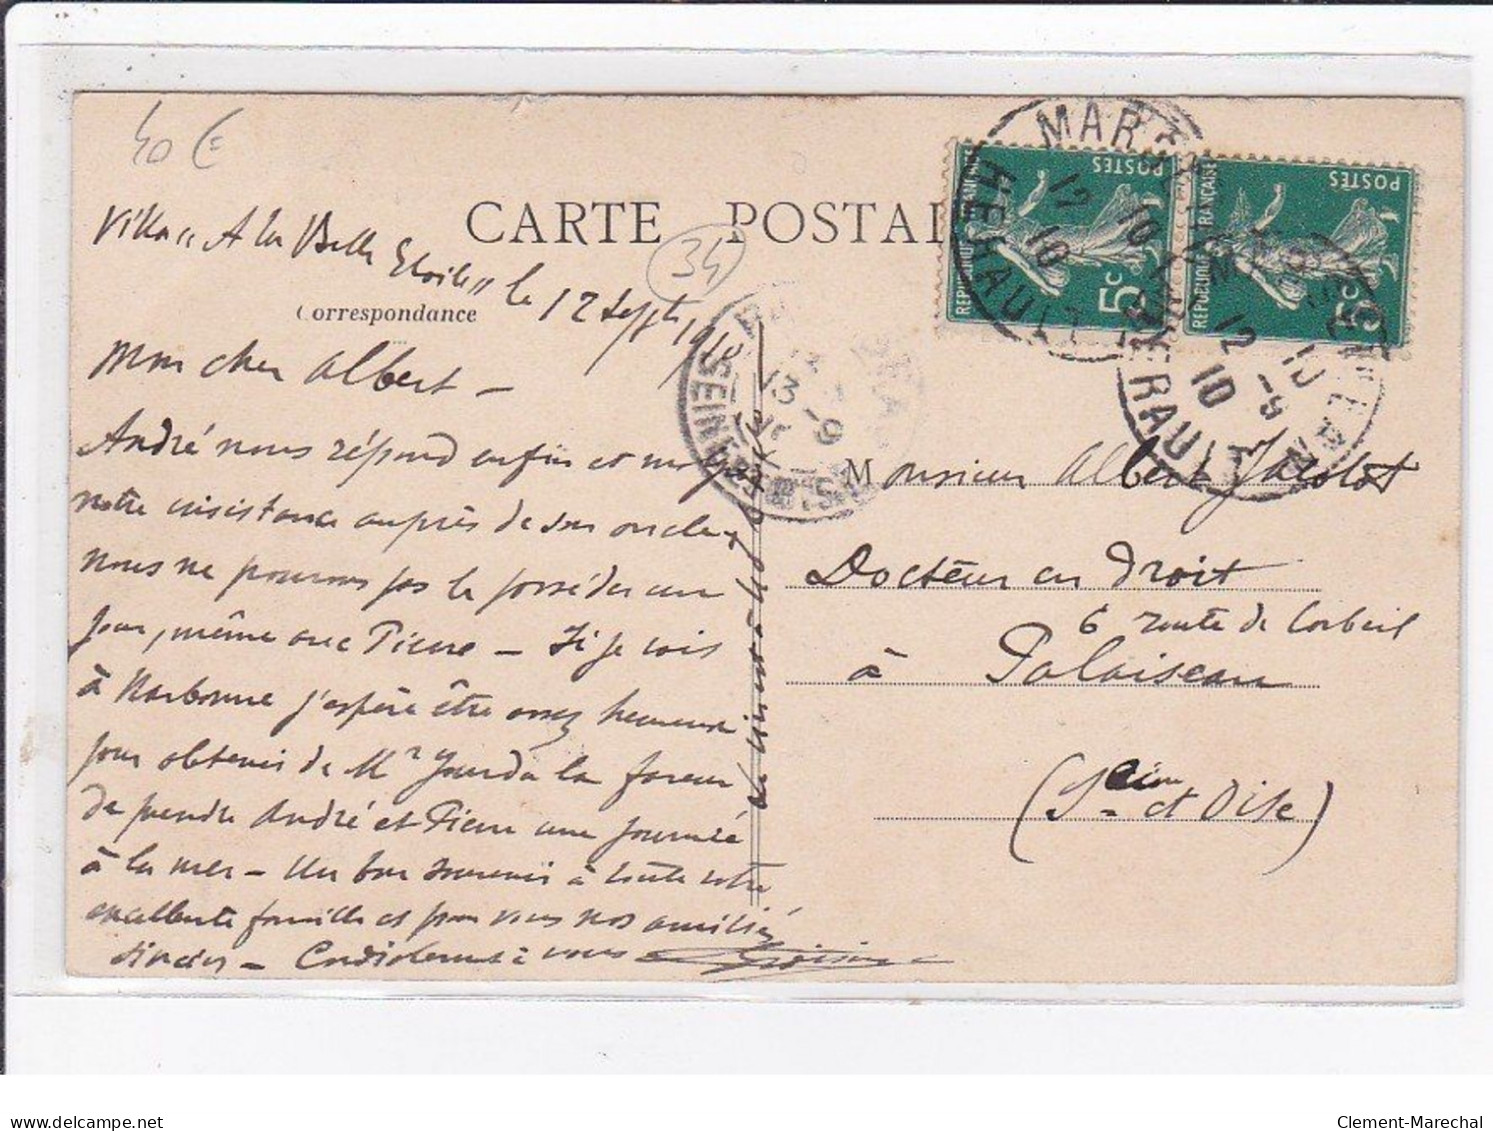 40 €
CARTE POSTAL
34
Villa " A la Belle Etoile " le 12 Sept 1910
Correspondance
Mon cher Albert -
André nous répond enfin et malgré
notre insistance auprès de son oncle
nous ne pourrons pas le posséder un
jour, même avec Pierre - Si je vais
à Narbonne j'espère être assez heureux
pour obtenir de Mr Jourda la faveur
de prendre André et Pierre une journée
à la mer - Un bon souvenir à toute votre
excellente famille et pour vous nos amitiés
sincères - Cordialement à vous
Monsieur Albert Jacolot
Docteur en Droit
6 route de Corbeil
à Palaiseau
(Seine et Oise)
POSTES
REPUBLIQUE FRANÇAISE
5c
POSTES
REPUBLIQUE FRANÇAISE
5c
MAR
12
10
10
HERAULT
12
10
HERAULT
13 -9
SEINE
Clement-Marechal